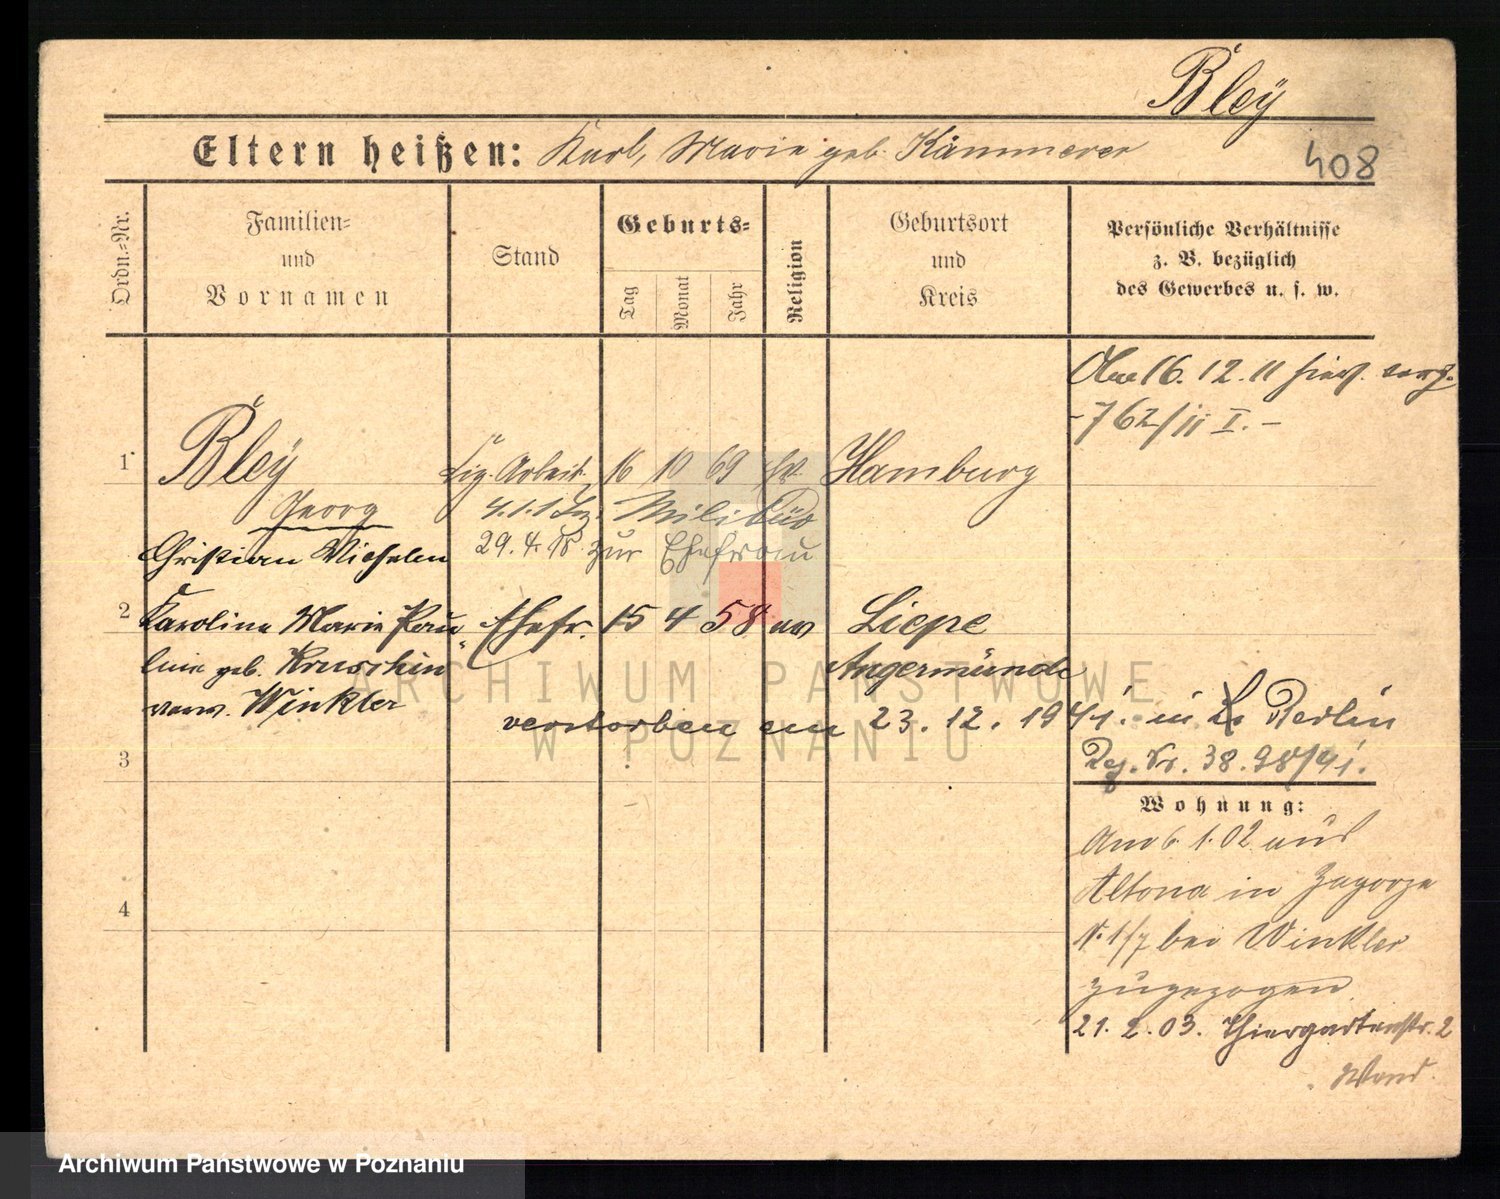 Bleÿ
Eltern heißen: Karl, Marie geb. Kämmerer
408
Ordn.=Nr.
Familien=
und
Vornamen
Stand
Geburts=
Tag
Monat
Jahr
Religion
Geburtsort
und
Kreis
Persönliche Verhältnisse
z. B. bezüglich
des Gewerbes u. s. w.
16. 12. 11
762/11 I. -
1 Bleÿ Zig. Arbeit. 16 10 69 ev Hamburg
Georg
Christian Wilhelm
Militär
29. 4. 18 zur Ehefrau
2 Karoline Marie Pau
line geb. Ehefr. 15 4 58 ev Liepe
verw. Winkler
Angermünde
verstorben am 23. 12. 1941. in Berlin
Reg. Nr. 38.98/41.
3
Wohnung:
Am 6. 1. 02 aus
Altona in Zagorze
N. 1/7 bei Winkler
zugezogen
21. 2. 03. Thiergartenstr. 2
4
ARCHIWUM PAŃSTWOWE
W POZNANIU
Archiwum Państwowe w Poznaniu